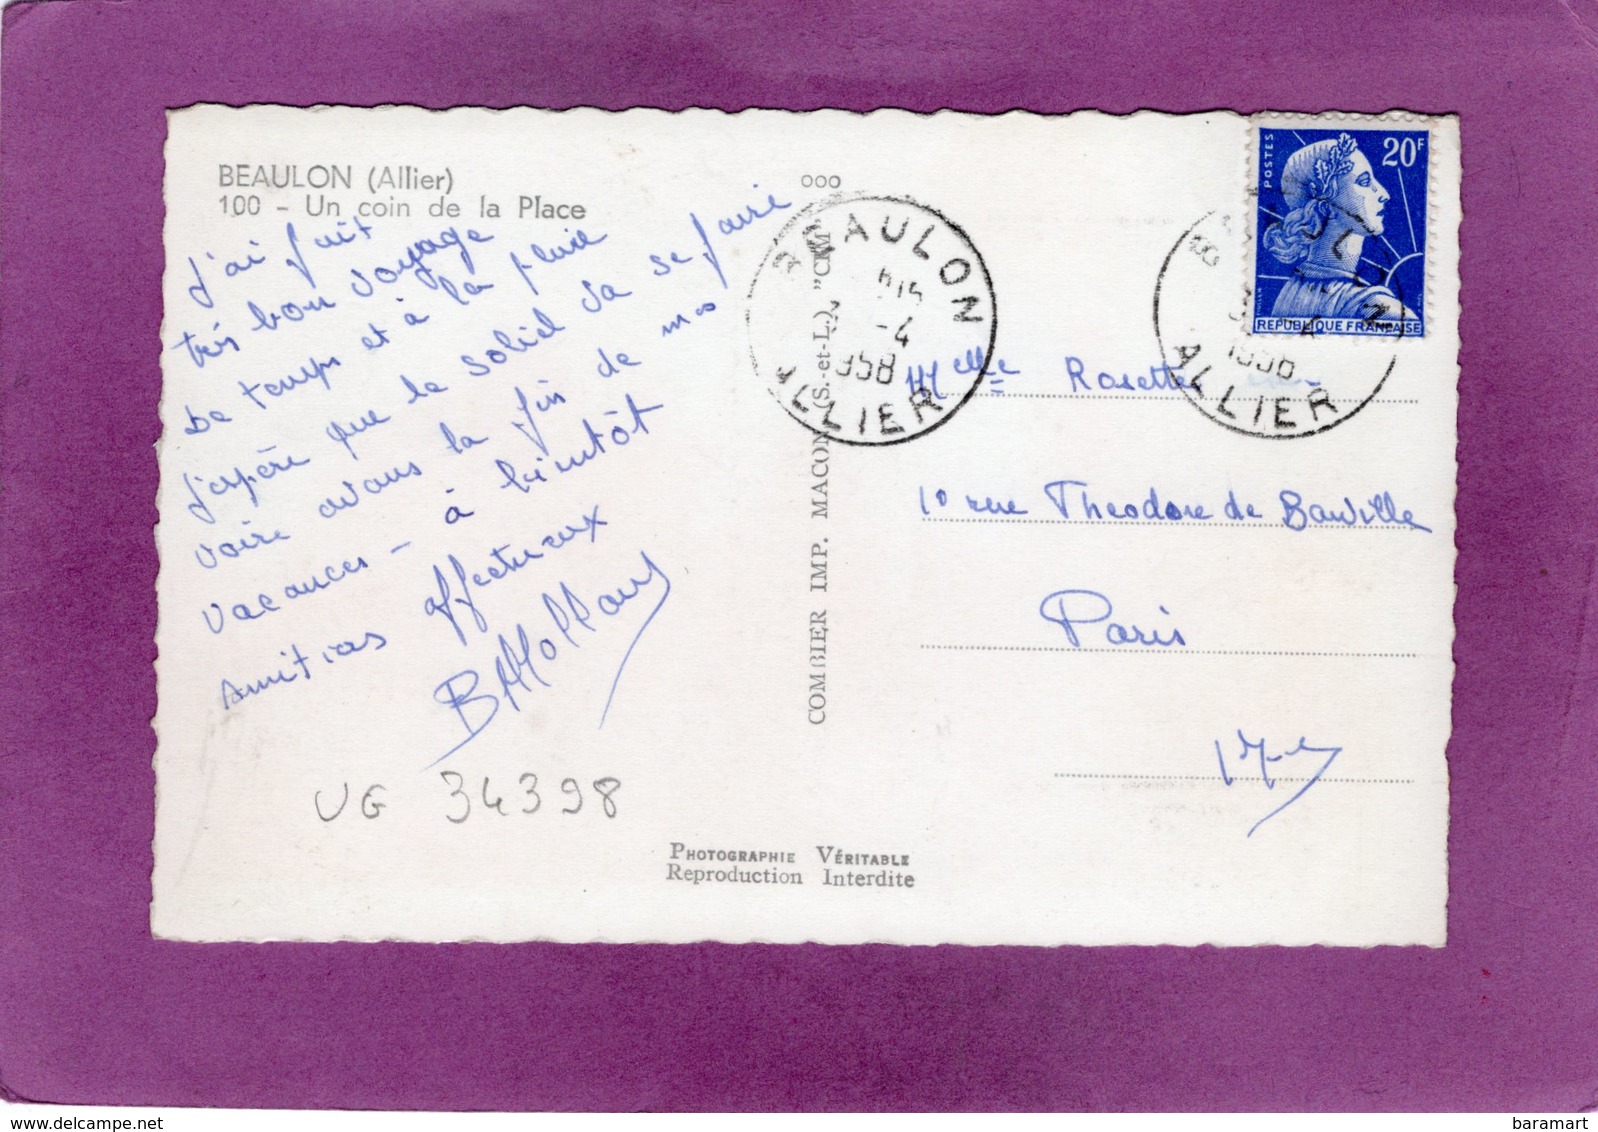 BEAULON (Allier)
100 - Un coin de la Place
J'ai fait
très bon voyage
Le temps et à la pluie
J'espère que le soleil va se faire
voire avans la fin de mas
vacances - à bientôt
Amitias affectueux
UG 34398
PHOTOGRAPHIE VÉRITABLE
Reproduction Interdite
COMBIER IMP. MACON (S.-et-L.) "CIM"
ooo
BEAULON
-4
1958
ALLIER
POSTES
20F
REPUBLIQUE FRANÇAISE
1958
ALLIER
Melle Rosette
10 rue Theodore de Banville
Paris
baramart